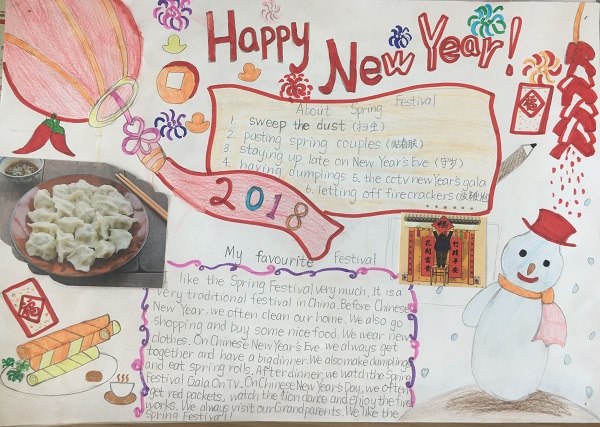 Happy New Year!
About Spring Festival
1. sweep the dust (扫尘)
2. pasting spring couples (贴春联)
3. staying up late on New Year's Eve (守岁)
4. having dumplings 5. the cctv new Year's gala
6. letting off firecrackers
2018
福
My favourite Festival
I like the Spring Festival very much. It is a
very traditional festival in China. Before Chinese
New Year, we often clean our home. We also go
shopping and buy some nice food. We wear new
clothes. On Chinese New Year's Eve. we always get
together and have a big dinner. We also make dumplings
and eat spring rolls. After dinner, we watch the Spring
Festival Gala On TV. On Chinese New Year's Day, we often
get red packets, watch the lion dance and enjoy the fire
works. We always visit our Grandparents. We like the
Spring Festival!